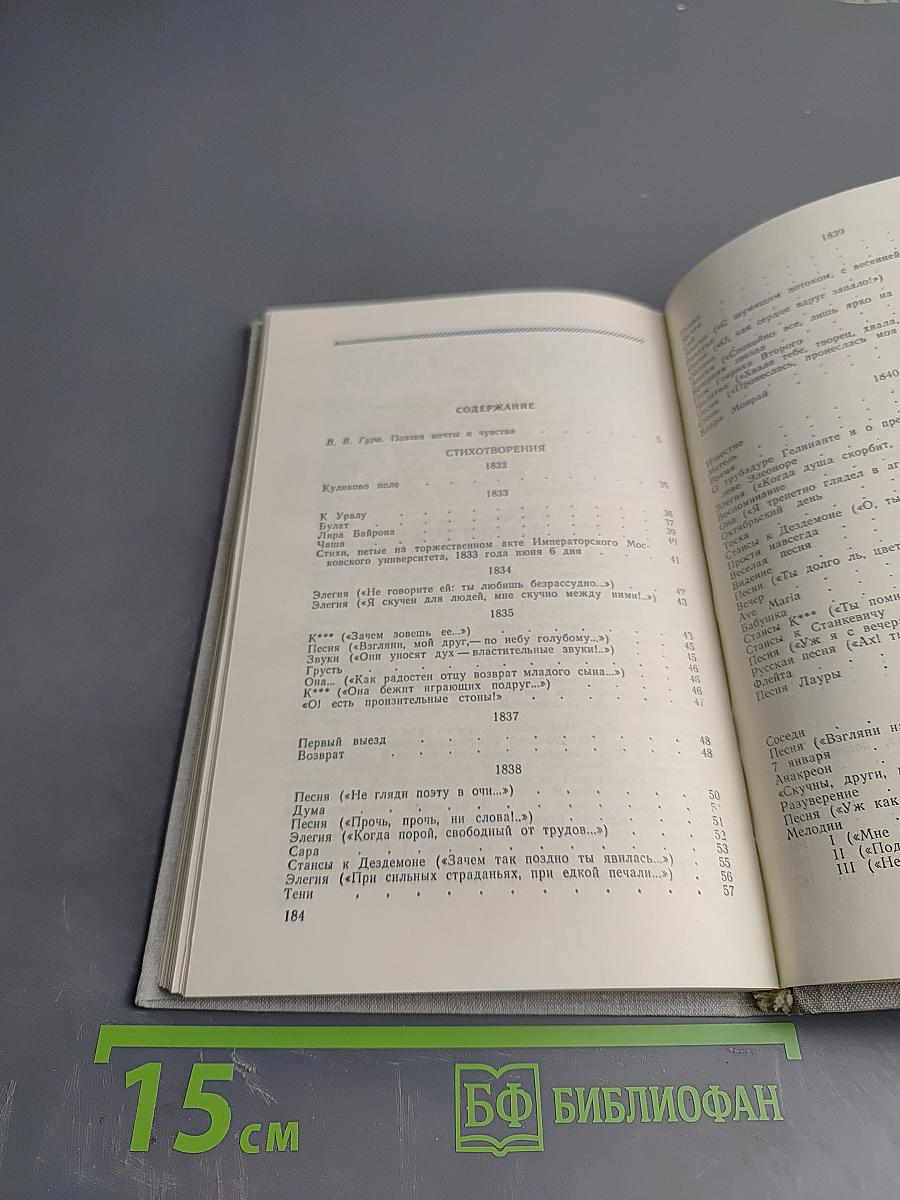 СОДЕРЖАНИЕ
В. В. Гура. Поэзия мечты и чувства . . . . 5
СТИХОТВОРЕНИЯ
1832
Куликово поле . . . . 35
1833
К Уралу . . . . 36
Булат . . . . 37
Лира Байрона . . . . 39
Чаша . . . . 40
Стихи, петые на торжественном акте Императорского Мос-
ковского университета, 1833 года июня 6 дня . . 41
1834
Элегия («Не говорите ей: ты любишь безрассудно...») . . 42
Элегия («Я скучен для людей, мне скучно между ними!..») . 43
1835
К*** («Зачем зовешь ее...») . . . . 43
Песня («Взгляни, мой друг,— по небу голубому...») . . 45
Звуки («Они уносят дух — властительные звуки!..») . . 45
Грусть . . . . 46
Она... («Как радостен отцу возврат младого сына...») . . 46
К*** («Она бежит играющих подруг...») . . . . 46
«О! есть пронзительные стоны!» . . . . 47
1837
Первый выезд . . . . 48
Возврат . . . . 48
1838
Песня («Не гляди поэту в очи...») . . . . 50
Дума . . . .
Песня («Прочь, прочь, ни слова!..») . . . . 51
Элегия («Когда порой, свободный от трудов...») . . . 52
Сара . . . . 53
Стансы к Дездемоне («Зачем так поздно ты явилась...») . 55
Элегия («При сильных страданьях, при едкой печали...») . 56
Тени . . . . 57
184
1839
(«С шумящим потоком, с весенней
(«О, как сердце вдруг запало!»)
(«Спокойно все, лишь ярко на
звезда
Генриха Второго
(«Хвала тебе, творец, хвала,
(«Пронеслась, пронеслась моя
Клара Моврай
1840
Известие
Метель
Время
О трубадуре Гелинанте и о пре
леве Элеоноре
Элегия («Когда душа скорбит,
Воспоминание
Она («Я трепетно глядел в аг
Октябрьский день
Тоска
Стансы к Дездемоне («О, ты
Прости навсегда
Веселая песня
Видение
Песня («Ты долго ль, цвет
Вечер
Ave Maria
Бабушка
Стансы К*** («Ты помн
Стансы к Станкевичу
Песня («Уж я с вечера
Русская песня («Ах! ты
Флейта
Песня Лауры
Соседи
Песня («Взгляни на
7 января
Анакреон
«Скучны, други,
Разуверение
Песня («Уж как
Мелодии
I («Мне
II («Под
III («Не
15 см
БФ БИБЛИОФАН